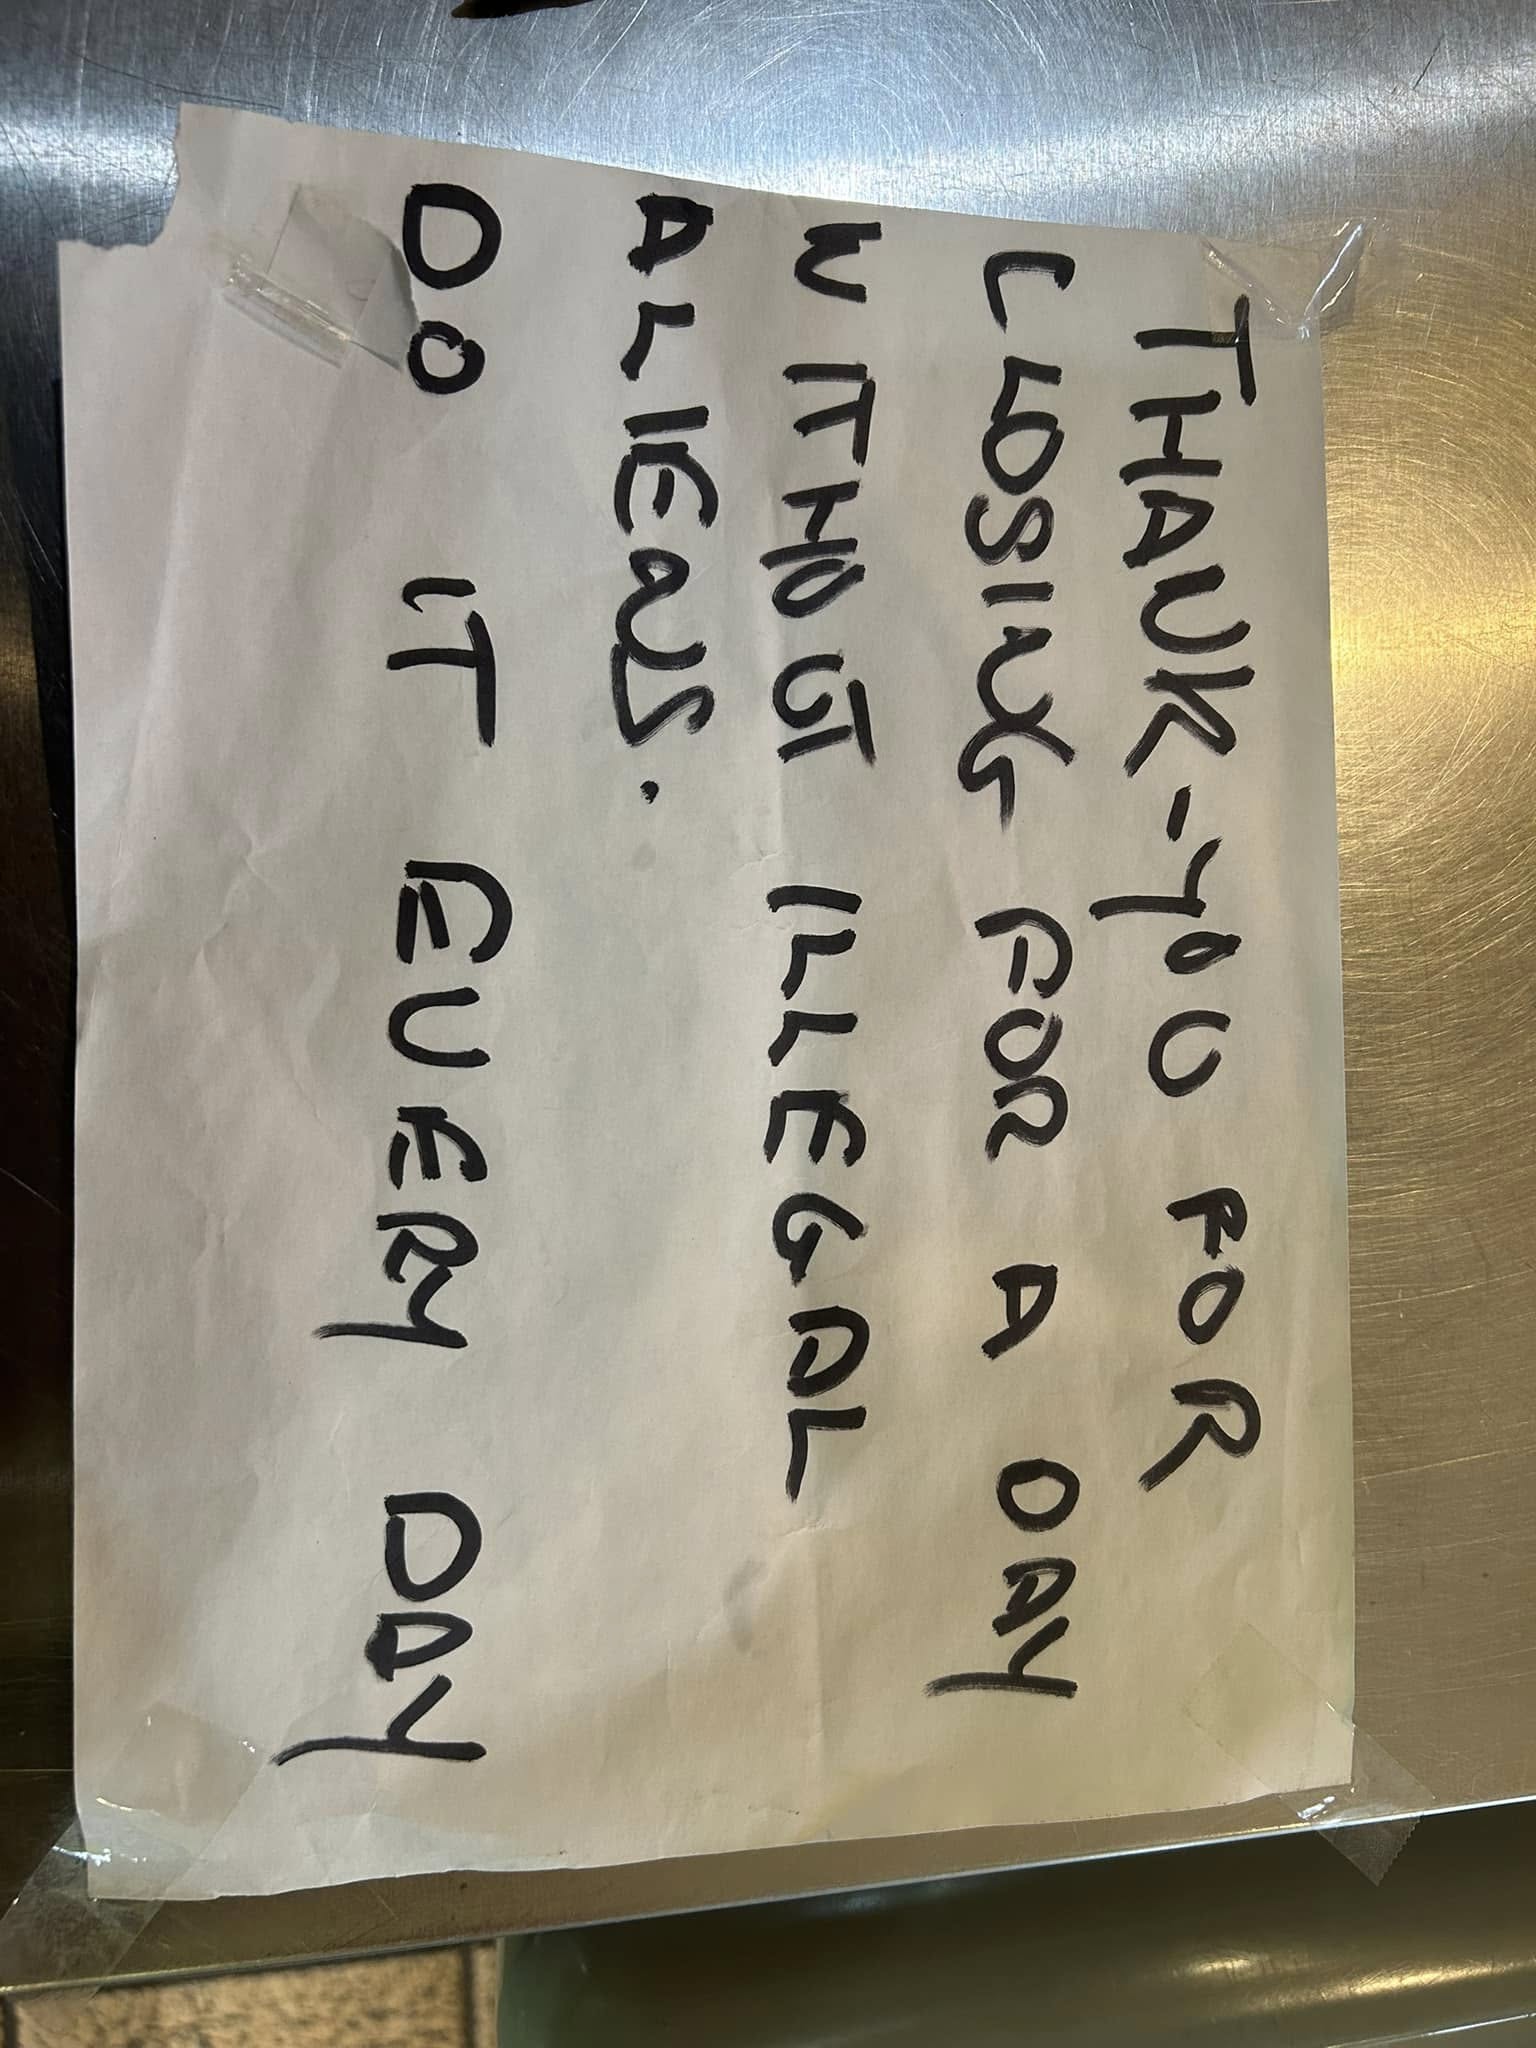 THANK-YOU FOR
CLOSING FOR A DAY
WITHOUT ILLEGAL
ALIENS.
DO IT EVERY DAY